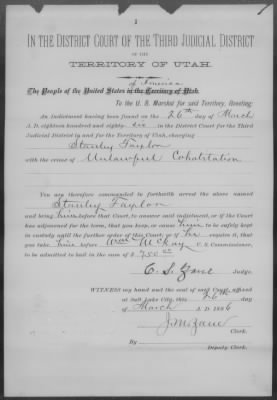 1
IN THE DISTRICT COURT OF THE THIRD JUDICIAL DISTRICT
OF THE
TERRITORY OF UTAH.
of America
The People of the United States in the Territory of Utah.
To the U. S. Marshal for said Territory, Greeting:
An Indictment having been found on the 26th day of March
A. D. eighteen hundred and eighty-six in the District Court for the Third
Judicial District in and for the Territory of Utah, charging
Stanley Taylor
with the crime of Unlawful Cohabitation
You are therefore commanded to forthwith arrest the above named
Stanley Taylor
and bring him before that Court, to answer said indictment, or if the Court
has adjourned for the term, that you keep, or cause him to be safely kept
in custody until the further order of this Court, or if he requires it, that
you take him before McKay, U. S. Commissioner,
to be admitted to bail in the sum of $
C. S. Zane
Judge.
WITNESS my hand and the seal of said Court, affixed
at Salt Lake City, this 26th day
of March A. D. 1886
J. M. Zane
Clerk.
By
Deputy Clerk.